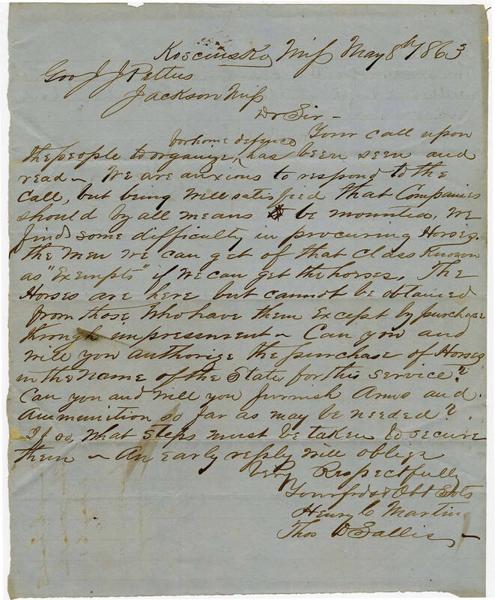 Kosciusko, Miss May 8th 1863
Gov J. J. Pettus
Jackson Miss
Dr Sir -
for home defence
Your call upon
the people to organize, has been seen and
read - We are anxious to respond to the
call, but being well satisfied that Companies
should by all means be mounted, we
find some difficulty in procuring Horses
the men we can get of that class known
as "Exempts" if we can get the horses. The
Horses are here but cannot be obtained
from those who have them except by purchase
through impressment - Can you and
will you authorize the purchase of Horses
in the name of the State for this service?
Can you and will you furnish Arms and
Ammunition so far as may be needed?
If so, what steps must be taken to secure
them - An early reply will oblige
Very Respectfully
Your frds & Obt Svts
Henry C Martin
Thos D Sallis -